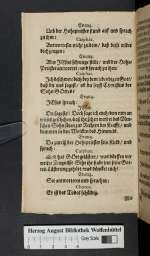 Evang.
Und der Hohepriester stund auff und sprach
zu ihm:
Caiphas.
Antwortestu nichts zu dem / daß diese wider
dich zeugen:
Evang.
Aber JEsus schwieg stille / und der Hohe-
Priester antwortet / und sprach zu ihm:
Caiphas.
Ich beschwere dich bey dem lebendigen Gott /
daß du uns sagest / ob du seyst Christus der
Sohn Gottes.
Evang.
JEsus sprach:
Jesus.
Du sagests: Doch sage ich euch von nun an
wird geschehen, daß ihr sehen werdet des Men-
schen Sohn sitzen zur Rechten der Krafft / und
kommen in den Wolcken des Himmels.
Evang.
Da zureiß der Hohepriester sein Kleid / und
sprach:
Caiphas.
Er hat GOtt gelästert / was dürffen wir
weiter Zeugniß? Siehe ihr habt jetzt seine Got-
tes-Lästerung gehört / was düncket euch?
Evang.
Sie antworteten und sprachen:
Chorus.
Er ist des Todes schuldig.
Herzog August Bibliothek Wolfenbüttel